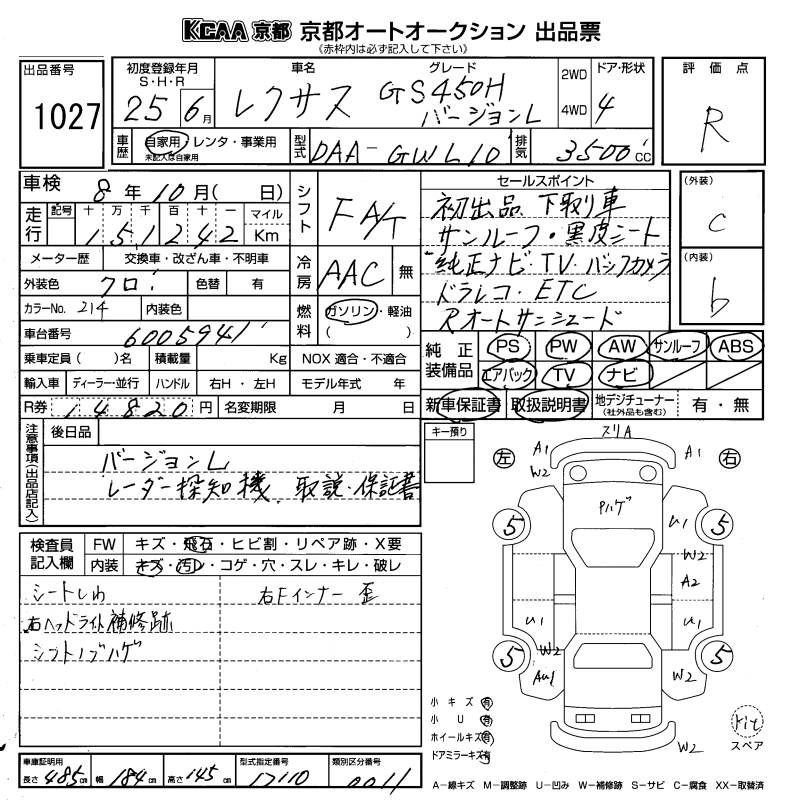 KCAA 京都 京都オートオークション 出品票
《赤枠内は必ず記入して下さい》
出品番号
1027
初度登録年月
S・H・R
25 6月
車名
レクサス
グレード
GS450H
バージョンL
2WD
4WD
ドア・形状
4
評価点
R
車歴
自家用・レンタ・事業用
未記入は自家用
型式
DAA-GWL10
排気
3500cc
車検
8年10月(日)
走行
記号 十 万 千 百 十 一 マイル
151242 Km
シフト
FA/T
メーター歴 交換車・改ざん車・不明車
外装色 クロ 色替 有
冷房
AAC 無
カラーNo. 214 内装色
燃料
ガソリン・軽油
( )
車台番号
6005941
乗車定員( )名 積載量 Kg NOX 適合・不適合
輸入車 ディーラー・並行 ハンドル 右H・左H モデル年式 年
R券 14820円 名変期限 月 日
セールスポイント
初出品 下取り車
サンルーフ・黒皮シート
純正ナビ・TV・バックカメラ
ドラレコ・ETC
Rオートサンシェード
(外装)
C
(内装)
b
純正装備品
PS PW AW サンルーフ ABS
エアバック TV ナビ
新車保証書 取扱説明書 地デジチューナー 有・無
(社外品も含む)
注意事項(出品店記入)
後日品
バージョンL
レーダー探知機、取説・保証書
キー預り
検査員記入欄
FW キズ・飛石・ヒビ割・リペア跡・X要
内装 キズ・汚レ・コゲ・穴・スレ・キレ・破レ
シートしわ
右Fインナー 歪
右ヘッドライト補修跡
シフトノブハゲ
左 右
スリA
A1 W2
A1
Pハゲ
5 5
U1
W2
A2
U1 U1
W2
5 5
AU1 W2
W2
小キズ 有
小U 有
ホイールキズ 有
ドアミラーキズ 有
Kit
スペア
車庫証明用
長さ 485cm 幅 184cm 高さ 145cm
型式指定番号
17110
類別区分番号
0011
A−線キズ M−調整跡 U−凹み W−補修跡 S−サビ C−腐食 XX−取替済